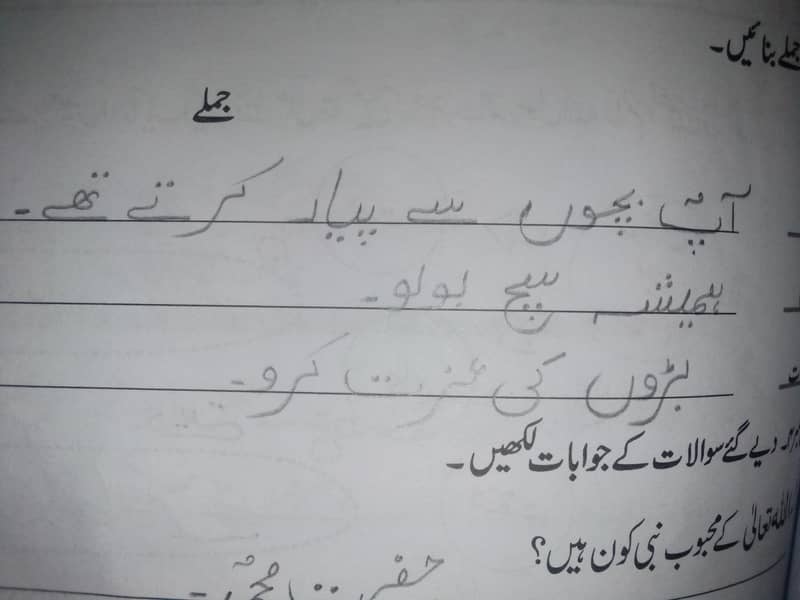 جملے بنائیں۔
جملے
آپؐ بچوں سے پیار کرتے تھے۔
ہمیشہ سچ بولو۔
بڑوں کی عزت کرو۔
دیے گئے سوالات کے جوابات لکھیں۔
اللہ تعالیٰ کے محبوب نبی کون ہیں؟
حضرت محمدؐ